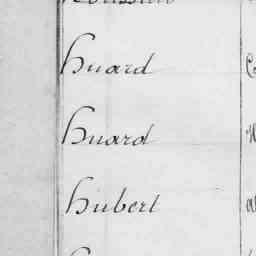 Huard
Huard
Hubert